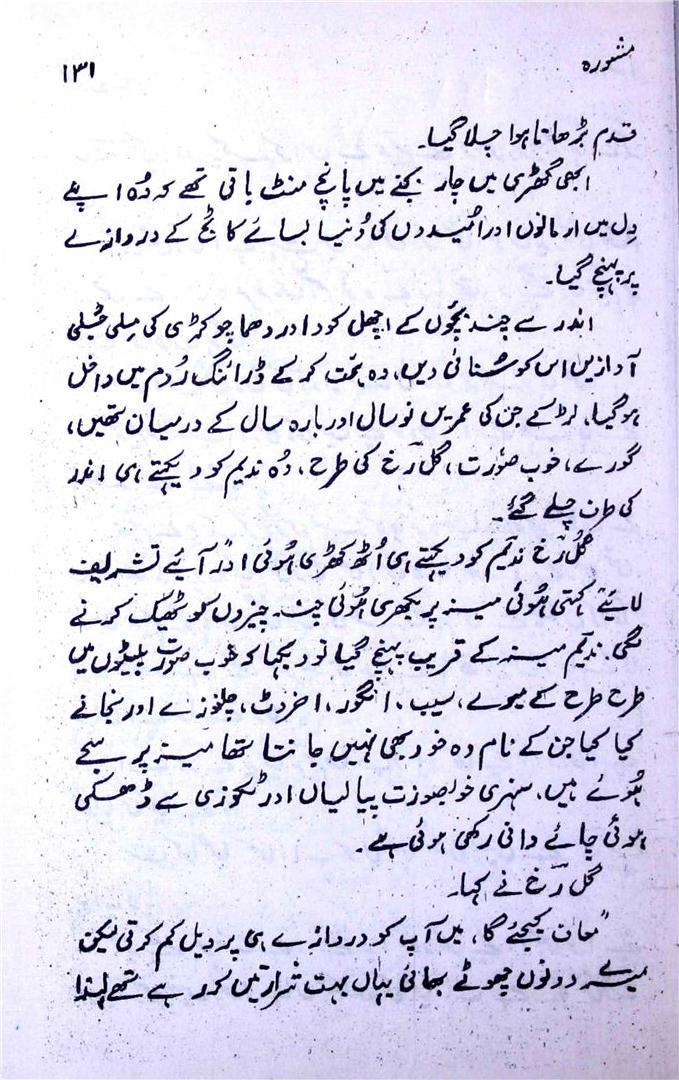 مشورہ
۱۳۱
قدم بڑھاتا ہوا چلا گیا۔
ابھی گھڑی میں چار بجنے میں پانچ منٹ باقی تھے کہ وُہ اپنے
دِل میں ارمانوں اور اُمیدوں کی دُنیا بسائے کاٹج کے دروازے
پر پہنچ گیا۔
اندر سے چند بچّوں کے اچھل کود اور دھما چوکڑی کی مِلی جُلی
آوازیں اس کو سُنائی دیں، وہ ہمّت کر کے ڈرائنگ رُوم میں داخل
ہو گیا۔ لڑکے جن کی عمریں نو سال اور بارہ سال کے درمیان تھیں،
گورے، خوب صُورت، گل رُخ کی طرح، وُہ ندیم کو دیکھتے ہی اندر
کی طرف چلے گئے۔
گل رُخ ندیم کو دیکھتے ہی اُٹھ کھڑی ہُوئی اور "آئیے تشریف
لائیے" کہتی ہُوئی میز پر بکھری ہُوئی چند چیزوں کو ٹھیک کرنے
لگی۔ ندیم میز کے قریب پہنچ گیا تو دیکھا کہ خوب صورت پلیٹوں میں
طرح طرح کے میوے، سیب، انگور، اخروٹ، چلغوزے اور نجانے
کیا کیا جن کے نام وہ خود بھی نہیں جانتا تھا میز پر سجے
ہُوئے ہیں۔ سنہری خوبصورت پیالیاں اور ٹکوزی سے ڈھکی
ہوئی چائے دانی رکھی ہوئی ہے۔
گل رُخ نے کہا۔
"معاف کیجئے گا، میں آپ کو دروازے ہی پر ویل کم کرتی لیکن
میرے دونوں چھوٹے بھائی یہاں بہت شرارتیں کر رہے تھے لہٰذا